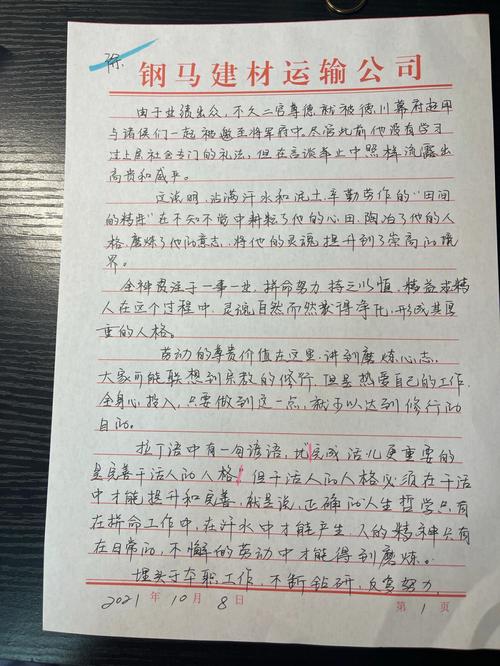 徐
钢马建材运输公司
由于业绩出众,不久二宫尊德就被德川幕府起用
与诸侯们一起被邀至将军府中,尽管此前他没有学习
过上层社会专门的礼法,但在言谈举止中照样流露出
高贵和威严。
这说明,沾满汗水和泥土辛勤劳作的“田间
的精进”在不知不觉中耕耘了他的心田,陶冶了他的人
格,磨炼了他的意志,将他的灵魂提升到了崇高的境
界。
全神贯注于一事一业,拼命努力,持之以恒,精益求精
人在这个过程中,灵魂自然而然获得净化,形成其厚
重的人格。
劳动的尊贵价值在这里,讲到磨炼心志,
大家可能联想到宗教的修行,但是热爱自己的工作
全身心投入,只要做到这一点,就可以达到修行的
目的。
拉丁语中有一句谚语,比完成活儿更重要的
是完善干活人的人格,但干活人的人格必须在干活
中才能提升和完善,就是说,正确的人生哲学只有
在拼命工作中,在汗水中才能产生,人的精神只有
在日常的,不懈的劳动中才能得到磨炼。
埋头于本职工作,不断钻研,反复努力,
2021年10月8日 第1页